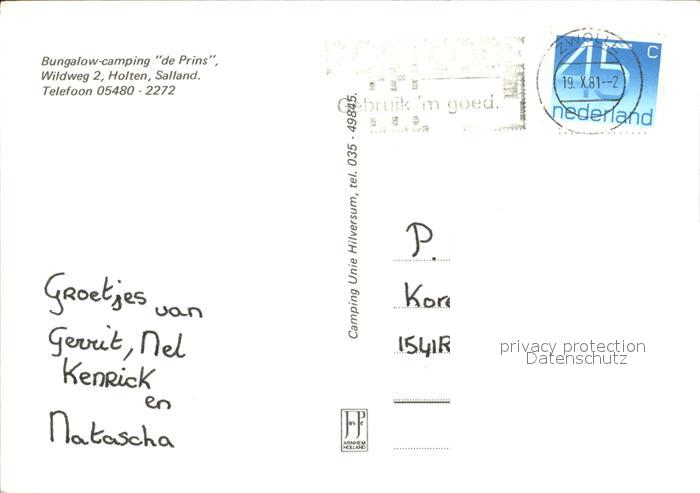 Bungalow-camping "de Prins",
Wildweg 2, Holten, Salland.
Telefoon 05480 - 2272
Groetjes van
Gerrit, Nel
Kenrick
en
Natascha
Camping Unie Hilversum, tel. 035 - 49845.
JosPé
ARNHEM
HOLLAND
Gebruik 'm goed.
ZWOLLE
19. X.81--2
45 c
nederland
P.
Kore
1541R
privacy protection
Datenschutz